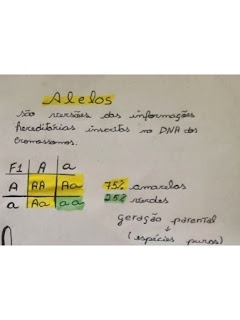 Alelos
são versões das informações
hereditárias inscritas no DNA dos
cromossomos.
F1 A a
A AA Aa 75% amarelas
a Aa aa 25% verdes
geração parental
↓
(espécies puras)